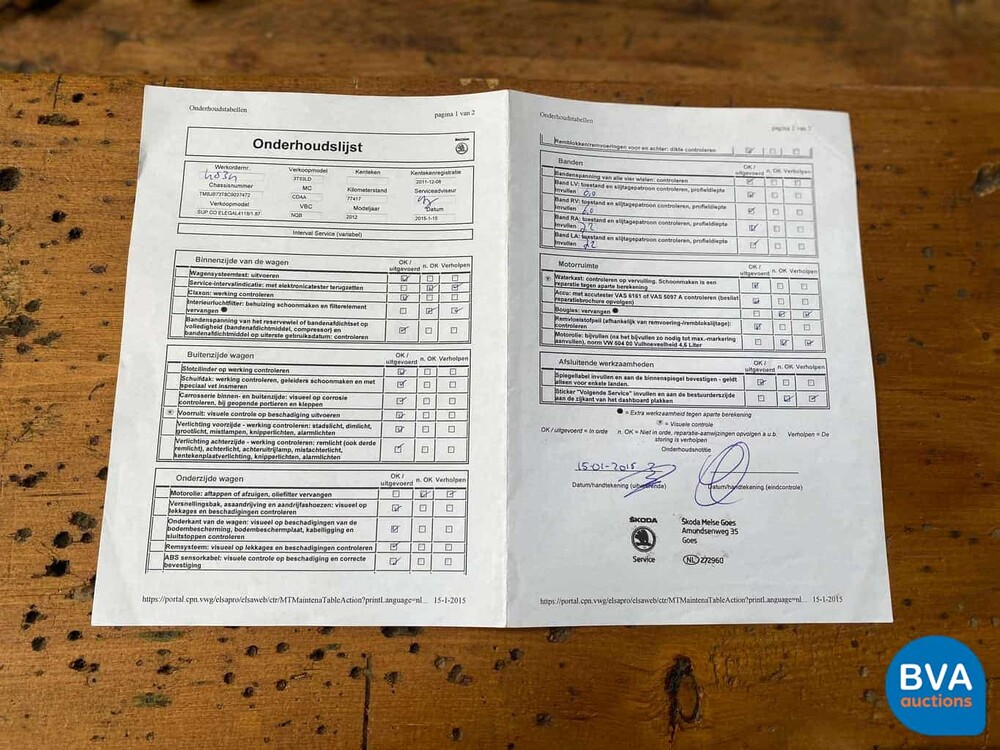 Onderhoudstabellen
pagina 1 van 2
Onderhoudslijst
SKODA
Werkordernr.
Verkoopmodel
Kenteken
Kentekenregistratie
3T53LD
2011-12-08
Chassisnummer
MC
Kilometerstand
Serviceadviseur
TMBJB73T8C9037472
CDAA
77417
Verkoopmodel
VBC
Modeljaar
Datum
SUP.CO ELEGAL4118/1.8T
NQB
2012
2015-1-15
Interval Service (variabel)
Binnenzijde van de wagen
OK / uitgevoerd n. OK Verholpen
Wagensysteemtest: uitvoeren
Service-intervalindicatie: met elektronicatester terugzetten
Claxon: werking controleren
Interieurluchtfilter: behuizing schoonmaken en filterelement
vervangen
Bandenspanning van het reservewiel of bandenafdichtset op
volledigheid (bandenafdichtmiddel, compressor) en
bandenafdichtmiddel op uiterste gebruikadatum: controleren
Buitenzijde wagen
OK / uitgevoerd n. OK Verholpen
Slotcilinder op werking controleren
Schuifdak: werking controleren, geleiders schoonmaken en met
speciaal vet insmeren
Carrosserie binnen- en buitenzijde: visueel op corrosie
controleren, bij geopende portieren en kleppen
Voorruit: visuele controle op beschadiging uitvoeren
Verlichting voorzijde - werking controleren: stadslicht, dimlicht,
grootlicht, mistlampen, knipperlichten, alarmlichten
Verlichting achterzijde - werking controleren: remlicht (ook derde
remlicht), achterlicht, achteruitrijlamp, mistachterlicht,
kentekenplaatverlichting, knipperlichten, alarmlichten
Onderzijde wagen
OK / uitgevoerd n. OK Verholpen
Motorolie: aftappen of afzuigen, oliefilter vervangen
Versnellingsbak, asaandrijving en aandrijfashoezen: visueel op
lekkages en beschadigingen controleren
Onderkant van de wagen: visueel op beschadigingen van de
bodembescherming, bodembeschermplaat, kabelligging en
sluitstoppen controleren
Remsysteem: visueel op lekkages en beschadigingen controleren
ABS sensorkabel: visuele controle op beschadiging en correcte
bevestiging
https://portal.cpn.vwg/elsapro/elsaweb/ctr/MTMaintenaTableAction?printLanguage=nl... 15-1-2015
Onderhoudstabellen
pagina 2 van 2
Remblokken/remvoeringen voor en achter: dikte controleren
Banden
OK / uitgevoerd n. OK Verholpen
Bandenspanning van alle vier wielen: controleren
Band LV: toestand en slijtagepatroon controleren, profieldiepte
invullen
Band RV: toestand en slijtagepatroon controleren, profieldiepte
invullen
Band RA: toestand en slijtagepatroon controleren, profieldiepte
invullen
Band LA: toestand en slijtagepatroon controleren, profieldiepte
invullen
Motorruimte
OK / uitgevoerd n. OK Verholpen
Waterkast: controleren op vervuiling. Schoonmaken is een
reparatie tegen aparte berekening
Accu: met accutester VAS 6161 of VAS 5097 A controleren (beslist
reparatiebrochure opvolgen)
Bougies: vervangen
Remvloeistofpeil (afhankelijk van remvoering-/remblokslijtage):
controleren
Motorolie: bijvullen (na het bijvullen zo nodig tot max.-markering
aanvullen), norm VW 504 00 Vulhoeveelheid 4,6 Liter
Afsluitende werkzaamheden
OK / uitgevoerd n. OK Verholpen
Spiegellabel invullen en aan de binnenspiegel bevestigen - geldt
alleen voor enkele landen.
Sticker "Volgende Service" invullen en aan de bestuurderszijde
aan de zijkant van het dashboard plakken
= Extra werkzaamheid tegen aparte berekening
= Visuele controle
OK / uitgevoerd = In orde n. OK = Niet in orde, reparatie-aanwijzingen opvolgen a.u.b. Verholpen = De
storing is verholpen
Onderhoudsnotitie
15-01-2015
Datum/handtekening (uitvoerende)
Datum/handtekening (eindcontrole)
ŠKODA
Service
Škoda Melse Goes
Amundsenweg 35
Goes
NL 272960
https://portal.cpn.vwg/elsapro/elsaweb/ctr/MTMaintenaTableAction?printLanguage=nl... 15-1-2015
BVA
auctions